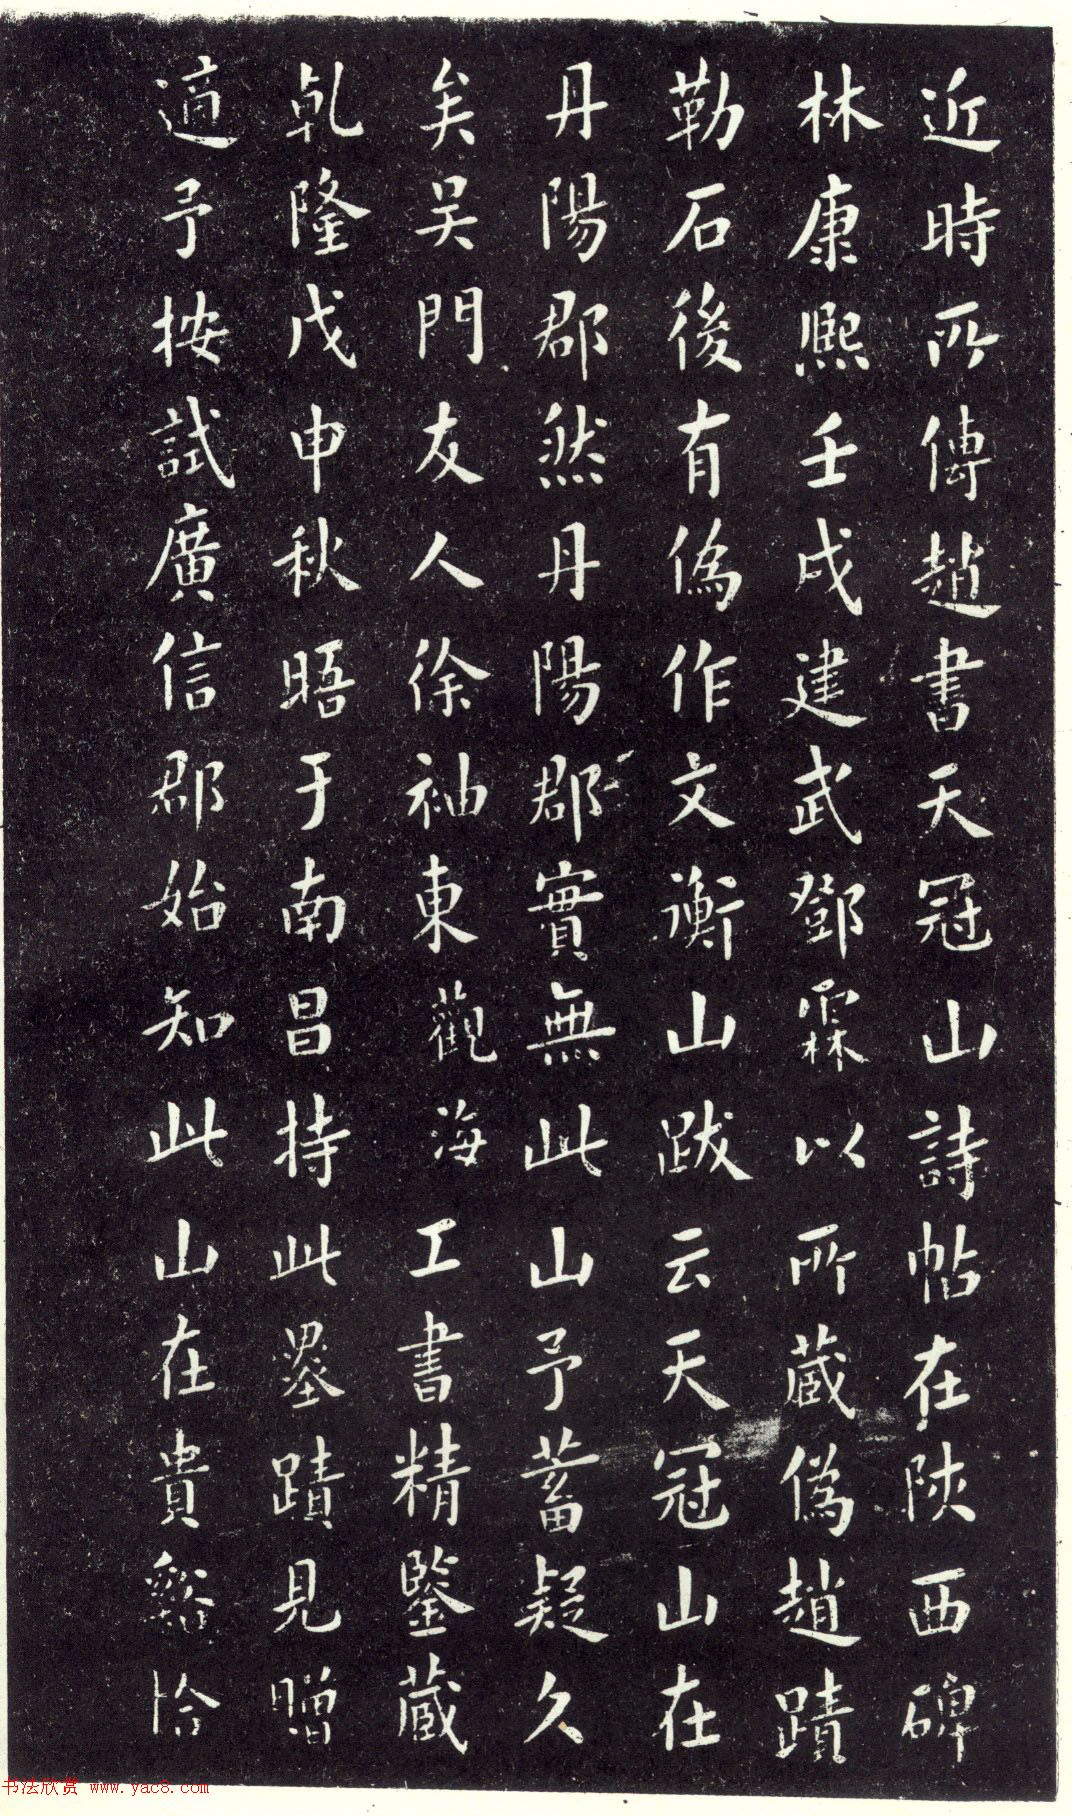 近時所傳趙書天冠山詩帖在陝西碑
林康熙壬戌建武鄧霖以所藏偽趙蹟
勒石後有偽作文衡山跋云天冠山在
丹陽郡然丹陽郡實無此山予蓄疑久
矣吴門友人徐袖東觀海工書精鑒藏
乹隆戊申秋晤于南昌持此墨蹟見贈
適予按試廣信郡始知此山在貴谿恰
书法欣赏 www.yac8.com